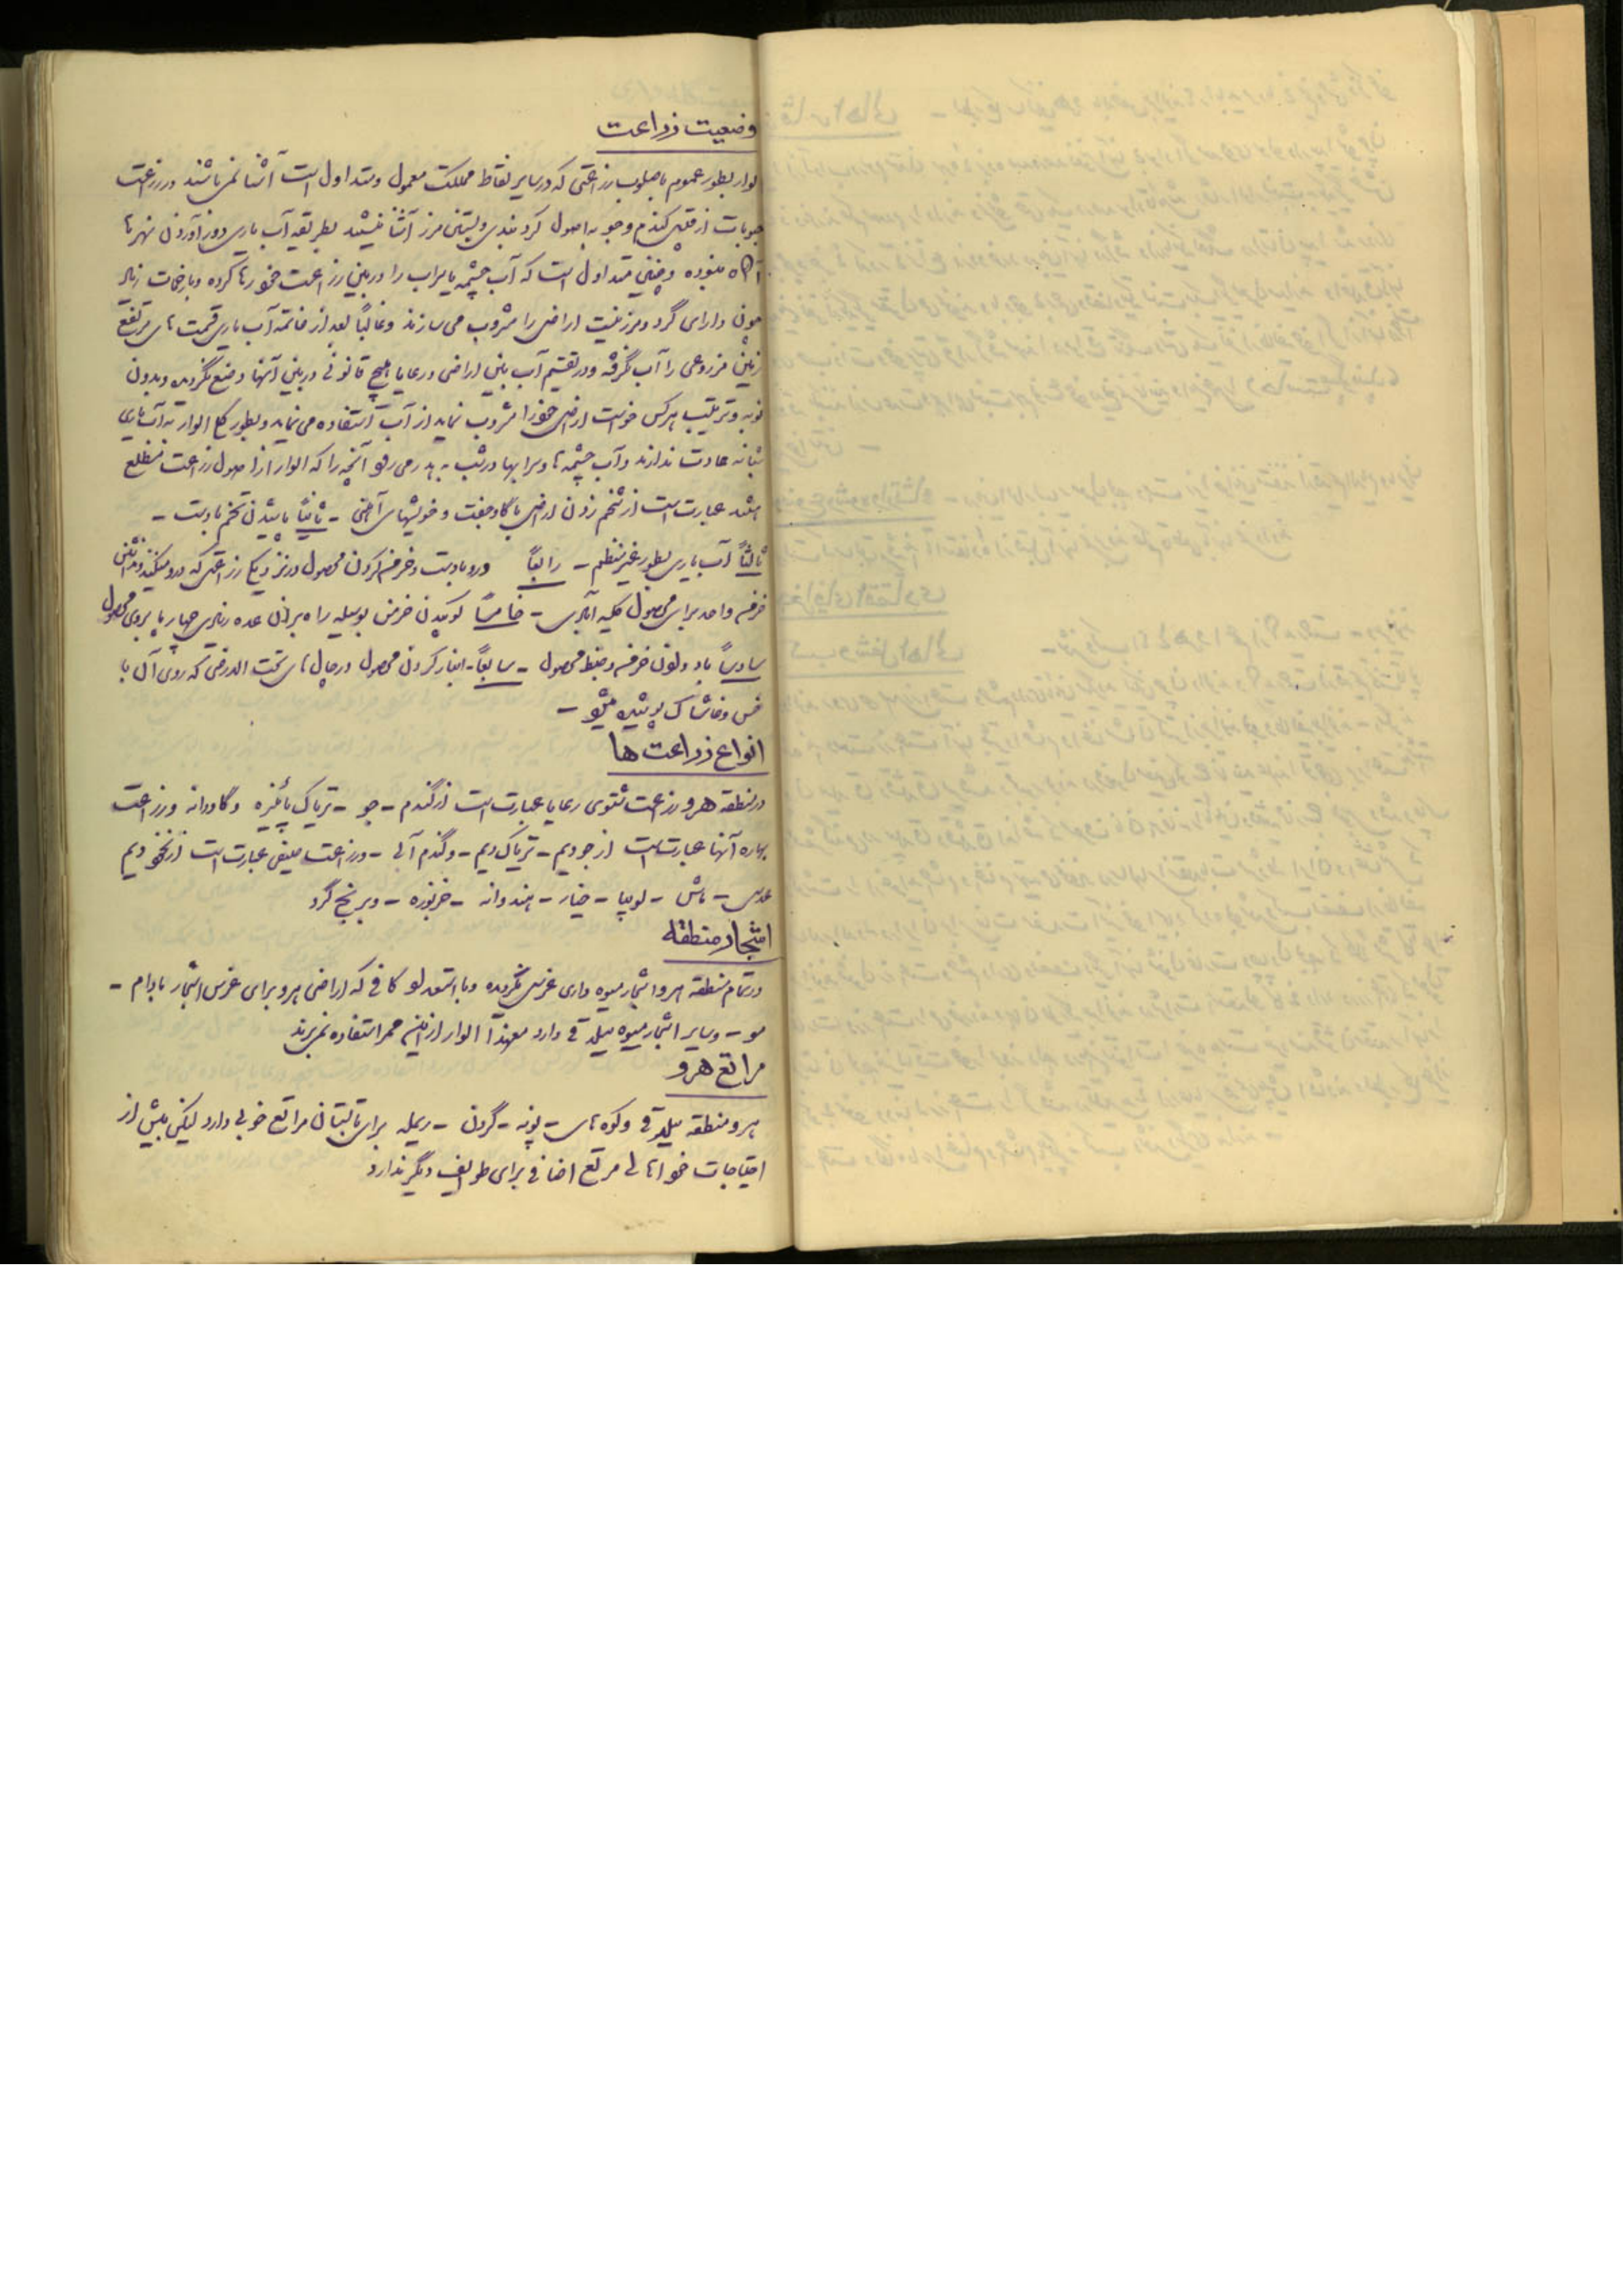 وضعیت زراعت
الوار بطور عموم باصلوب زراعتی که در سایر نقاط مملکت معمول و متداول است آشنا نمی‌باشند در زراعت
حبوبات از قبیل گندم و جو به اصول کرد بندی و بستن مرز آشنا نیستند بطریقه آب یاری و در آوردن نهرها
آگاه نبوده و چنین متداول است که آب چشمه یا سراب را در بین زراعت خود رها کرده و با زحمات زیاد
چون دارای کرد و مرز نیست اراضی را مشروب می سازند و غالباً بعد از خاتمه آب یاری قسمت های مرتفع
زمین مزروعی را آب نگرفته و در تقسیم آب بین اراضی و رعایا هیچ قانونی در بین آنها وضع نگردیده و بدون
نوبه و ترتیب هر کس خواست اراضی خود را مشروب نماید از آب استفاده می نماید و بطور کلی الوار به آب یاری
شبانه عادت ندارند و آب چشمه ها و سرابها در شب به هدر می رود آنچه را که الوار از اصول زراعت مطلع
هستند عبارتست از شخم زدن اراضی با گاو جفت و خویشهای آهنی - ثانیاً پاشیدن تخم با دست -
ثالثاً آب یاری بطور غیر منظم - رابعاً درو با دست و خرمن کردن محصول در نزدیک زراعتی که درو میکنند
خرمن واحد برای محصول کلیه آبادی - خامساً کوبیدن خرمن بوسیله راه بردن عده زیادی چهار پا بروی محصول
سادساً باد دادن خرمن و ضبط محصول - سابعاً - انبار کردن محصول در چال های تحت الارضی که روی آن با
خس و خاشاک پوشیده میشود -
انواع زراعت ها
در منطقه هرو زراعت شتوی رعایا عبارت است از گندم - جو - تریاک پائیزه و گاودانه و زراعت
بهاره آنها عبارتست از جو دیم - تریاک دیم - و گندم آبی - و زراعت صیفی عبارت است از نخود دیم
عدس - ماش - لوبیا - خیار - هندوانه - خربوزه - و برنج گرد
اشجار منطقه
در تمام منطقه هرو اشجار میوه داری غرس نگردیده و با استعداد کافی که اراضی هرو برای غرس اشجار بادام -
مو - و سایر اشجار میوه ییلاقی دارد معهذا الوار از این ممر استفاده نمی‌برند
مراتع هرو
هرو منطقه ییلاقی و کوه های - پونه - گردن - ریمله برای تابستان مراتع خوبی دارد لیکن بیش از
احتیاجات خود اهالی مرتع اضافی برای طوایف دیگر ندارد